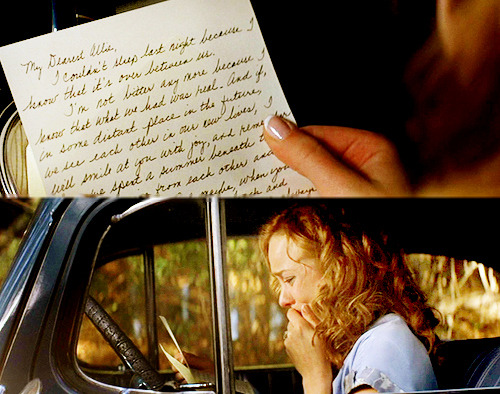 My Dearest Allie,
I couldn't sleep last night because I
know that it's over between us.
I'm not bitter any more because I
know that what we had was real. And if,
in some distant place in the future,
we see each other in our new lives, I
will smile at you with joy, and
we spent a summer beneath
from each other and
maybe, when you
and